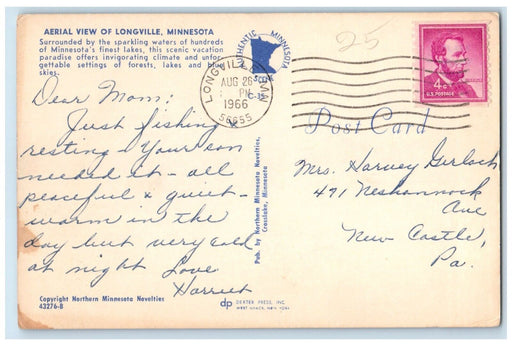 AERIAL VIEW OF LONGVILLE, MINNESOTA
Surrounded by the sparkling waters of hundreds
of Minnesota's finest lakes, this scenic vacation
paradise offers invigorating climate and unfor-
gettable settings of forests, lakes and blue
skies.
AUTHENTIC MINNESOTA
SC-35
LONGVILLE MINN
AUG 26
PM
1966
56655
25
4¢
U.S. POSTAGE
Post Card
Dear Mom:
Just fishing
resting - Your son
needed it - all
peaceful & quiet -
warm in the
day but very cold
at night Love
Harriet
Mrs. Harvey Gerlach
471 Neshannock
Ave
New Castle,
Pa.
Pub. by Northern Minnesota Novelties,
Crosslake, Minnesota
Copyright Northern Minnesota Novelties
43276-B
dp
DEXTER PRESS, INC.
WEST NYACK, NEW YORK